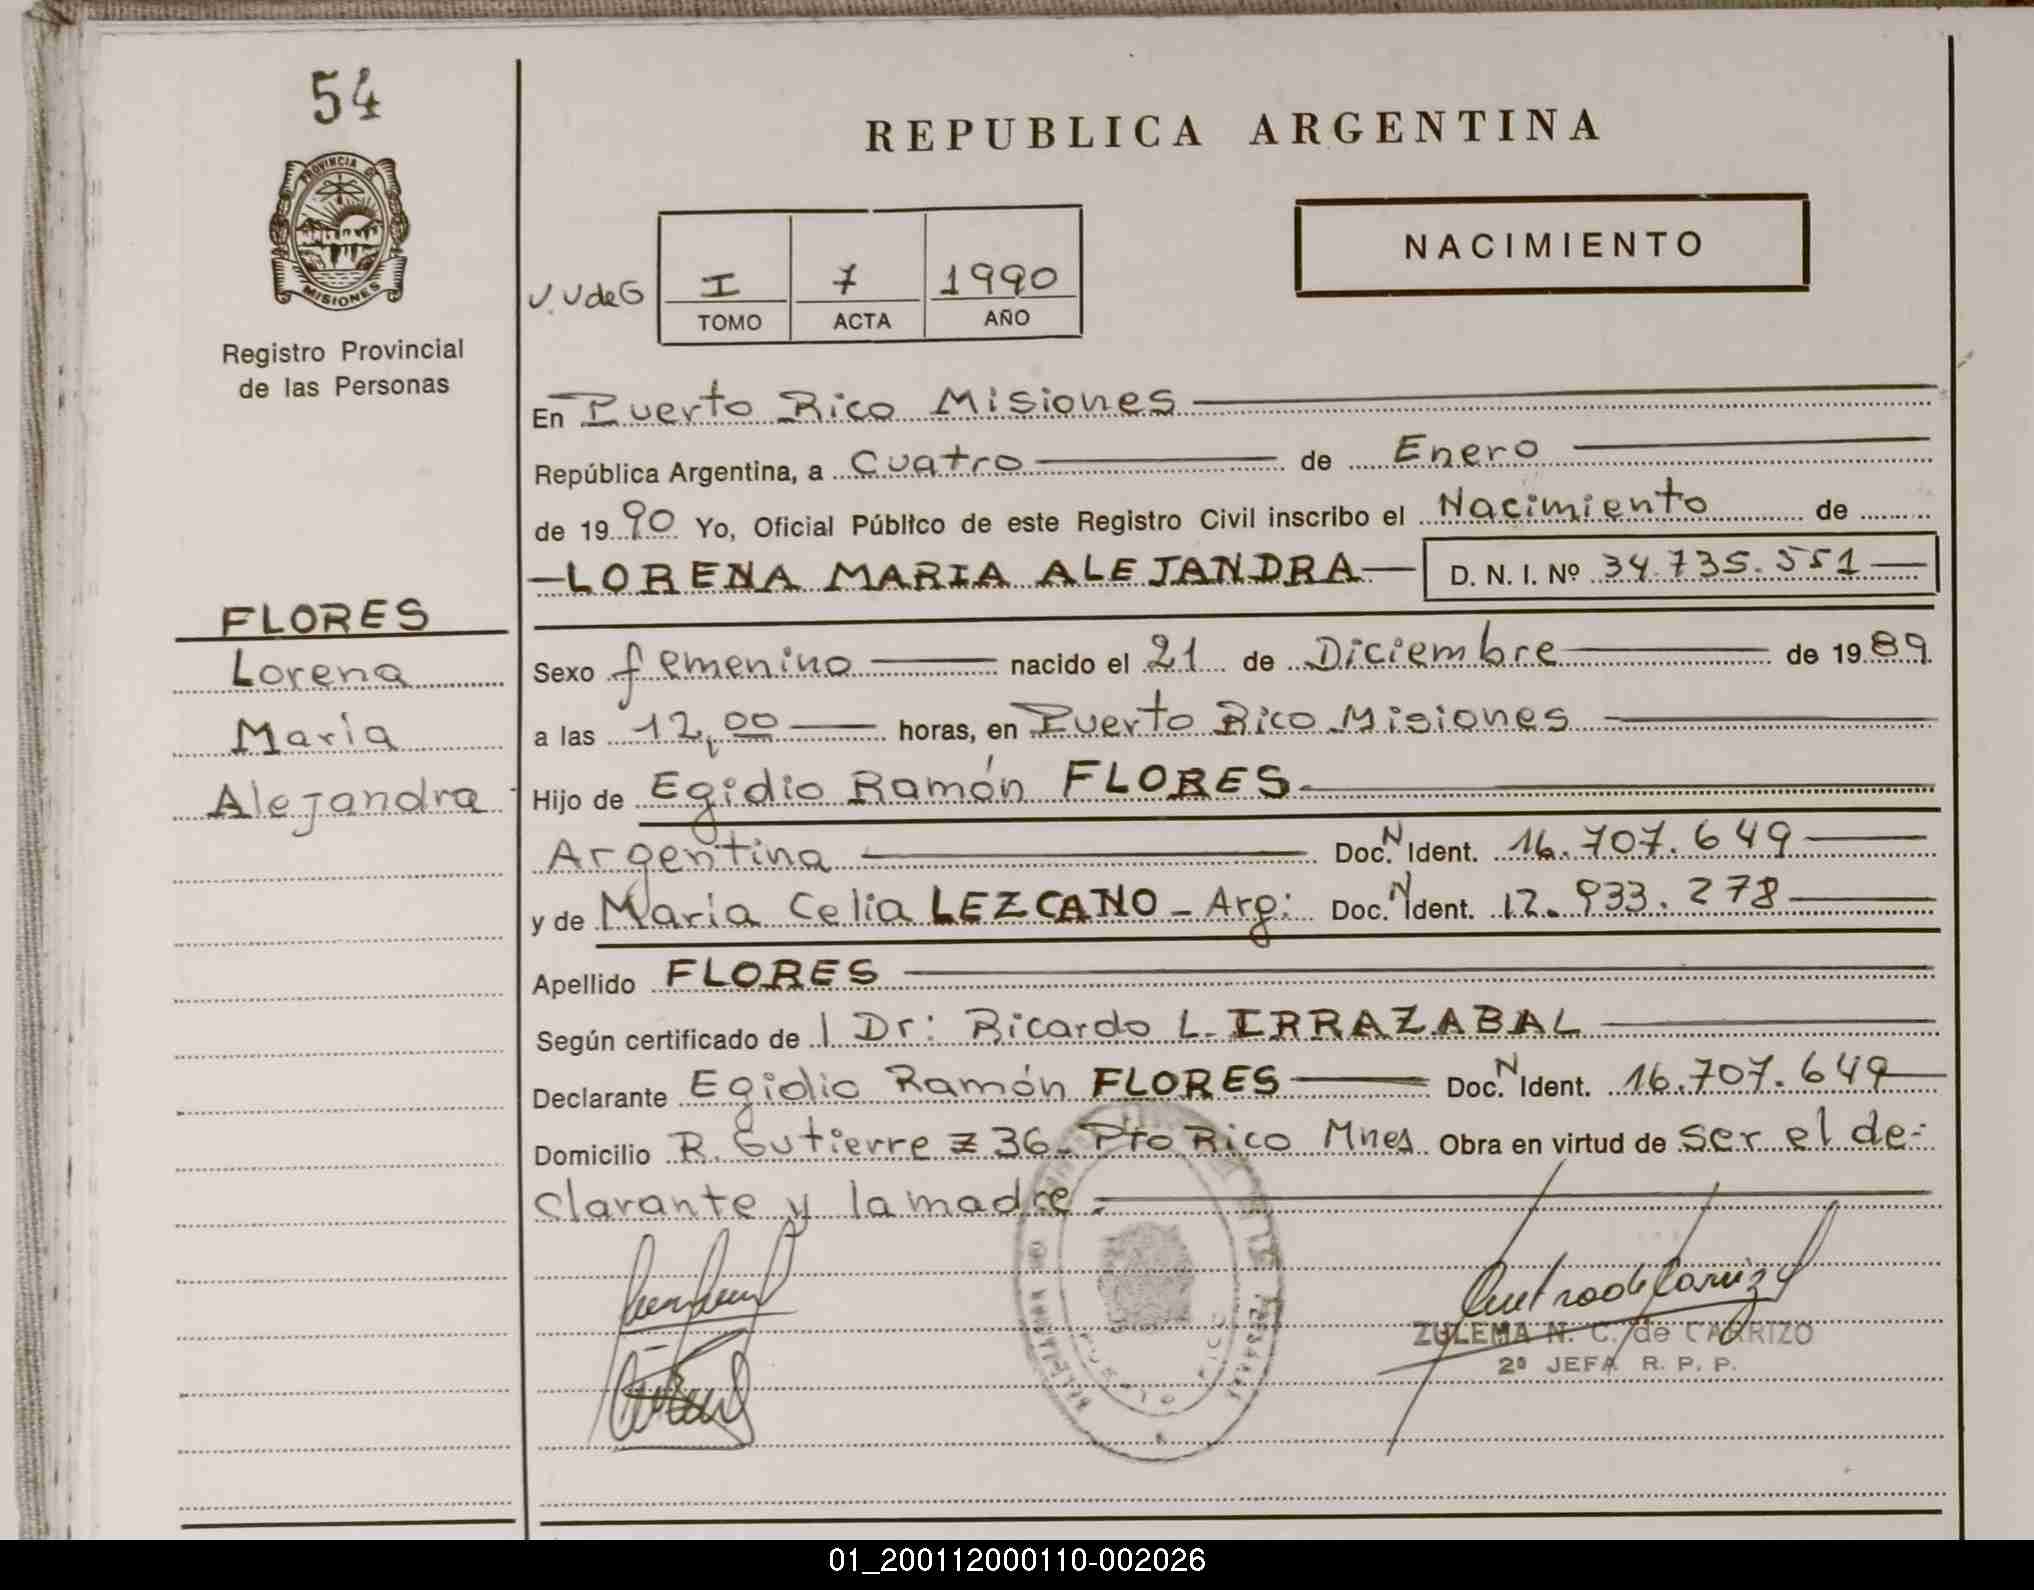 54
PROVINCIA DE
MISIONES
Registro Provincial
de las Personas
REPUBLICA ARGENTINA
NACIMIENTO
V.V de G
I 7 1990
TOMO ACTA AÑO
En Puerto Rico Misiones
República Argentina, a Cuatro de Enero
de 1990 Yo, Oficial Público de este Registro Civil inscribo el Nacimiento de
LORENA MARIA ALEJANDRA D. N. I. Nº 34.735.551
FLORES
Lorena
María
Alejandra
Sexo femenino nacido el 21 de Diciembre de 1989
a las 12,00 horas, en Puerto Rico Misiones
Hijo de Egidio Ramón FLORES
Argentina Doc. N Ident. 16.707.649
y de María Celia LEZCANO - Arg: Doc. N Ident. 12.933.278
Apellido FLORES
Según certificado de l Dr: Ricardo L. IRRAZABAL
Declarante Egidio Ramón FLORES Doc. N Ident. 16.707.649
Domicilio R. Gutierrez 36. Pto Rico Mnes Obra en virtud de ser el de-
clarante y la madre.
ZULEMA N. C. de CARRIZO
2ª JEFA R. P. P.
01_200112000110-002026